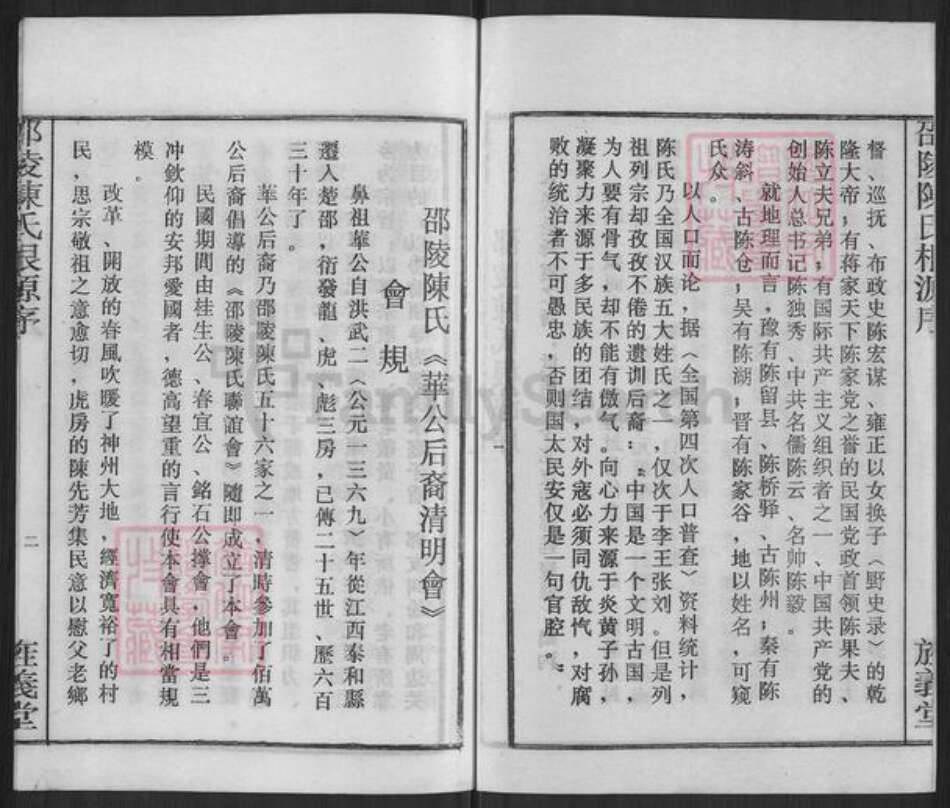 邵陵陈氏根源序
督、巡抚、布政史陈宏谋、雍正以女换子（野史录）的乾
隆大帝；有蒋家天下陈家党之誉的民国党政首领陈果夫、
陈立夫兄弟；有国际共产主义组织者之一、中国共产党的
创始人总书记陈独秀、中共名儒陈云、名帅陈毅。
就地理而言，豫有陈留县、陈桥驿、古陈州；秦有陈
涛斜、古陈仓；吴有陈湖；晋有陈家谷，地以姓名，可窥
氏众。
以人口而论，据（全国第四次人口普查）资料统计，
陈氏乃全国汉族五大姓氏之一，仅次于李王张刘。但是列
祖列宗却孜孜不倦的遗训后裔：中国是一个文明古国，
为人要有骨气，却不能有傲气。向心力来源于炎黄子孙，
凝聚力来源于多民族的团结，对外寇必须同仇敌忾，对腐
败的统治者不可愚忠，否则国太民安仅是一句官腔。
旌義堂
一
邵陵陳氏《華公后裔清明會》
會規
鼻祖華公自洪武二（公元一三六九）年從江西泰和縣
遷入楚邵，衍發龍、虎、彪三房，已傳二十五世、歷六百
三十年了。
華公后裔乃邵陵陳氏五十六家之一，清時參加了佰萬
公后裔倡導的《邵陵陳氏聯誼會》隨即成立了本會。
民國期間由桂生公、春宜公、銘石公撐會，他們是三
冲欽仰的安邦愛國者，德高望重的言行使本會具有相當規
模。
改革、開放的春風吹暖了神州大地，經濟寬裕了的村
民，思宗敬祖之意愈切，虎房的陳先芳集民意以慰父老鄉
邵陵陳氏根源序
二
旌義堂
FamilySearch